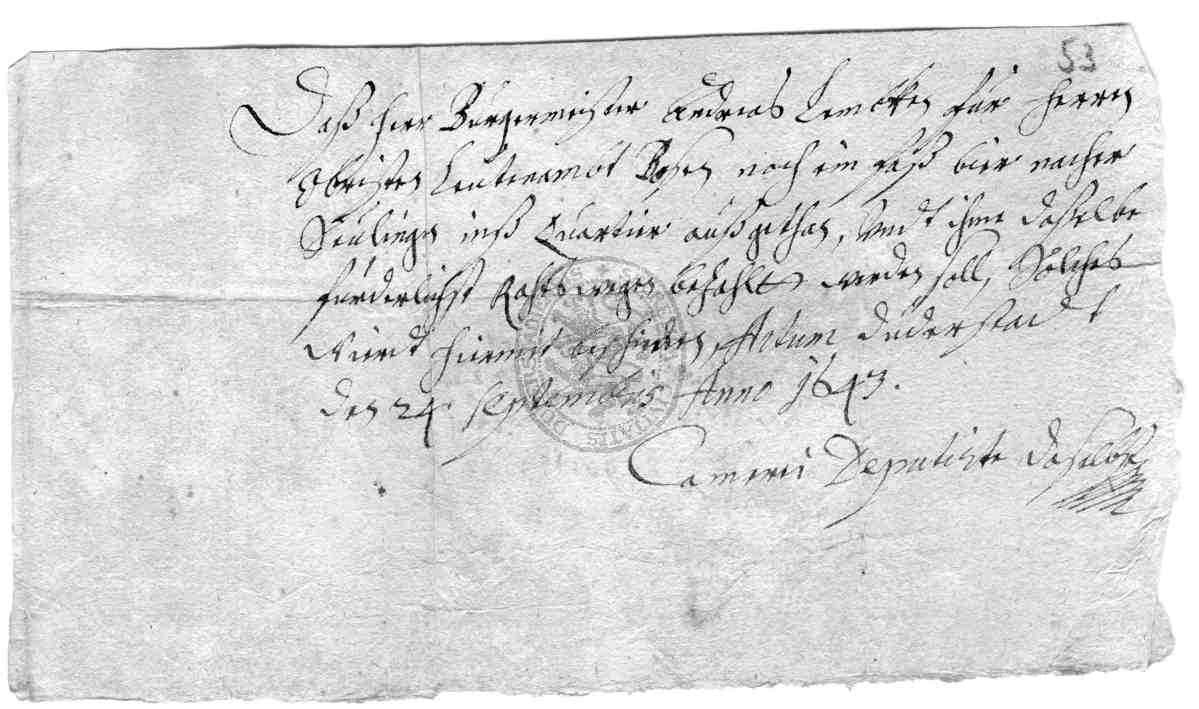 53
Daß Herr Bürgermeister Andreas Lembken für Herren
Obristen Leutenambt Rosen noch ein faß bier nacher
Seulingen inß Quartier außgethan, Undt ihme dasselbe
fürderlichst Rahtswegen bezahlt werden soll, Solches
Wirdt hiermit bescheinen, Actum Duderstadt
den 24 Septembris Anno 1643.
Camerei Deputirte daselbst